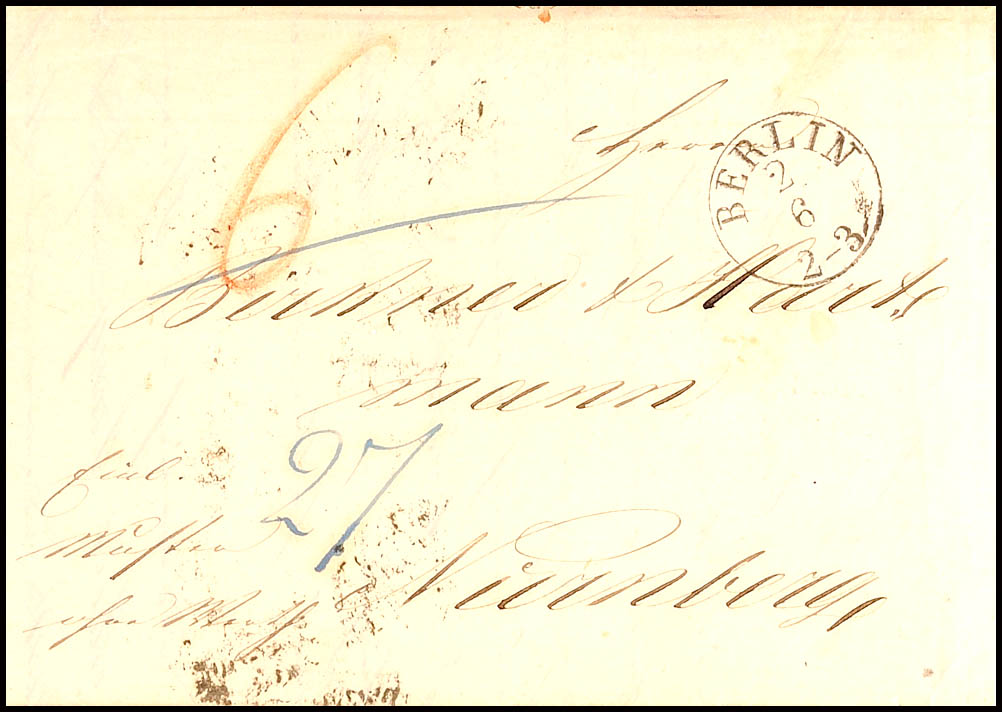 6
Herrn
BERLIN
2
6
2-3
Birkner & Hart
mann
27
Einl.
Muster
ohne Werth
Nürnberg,